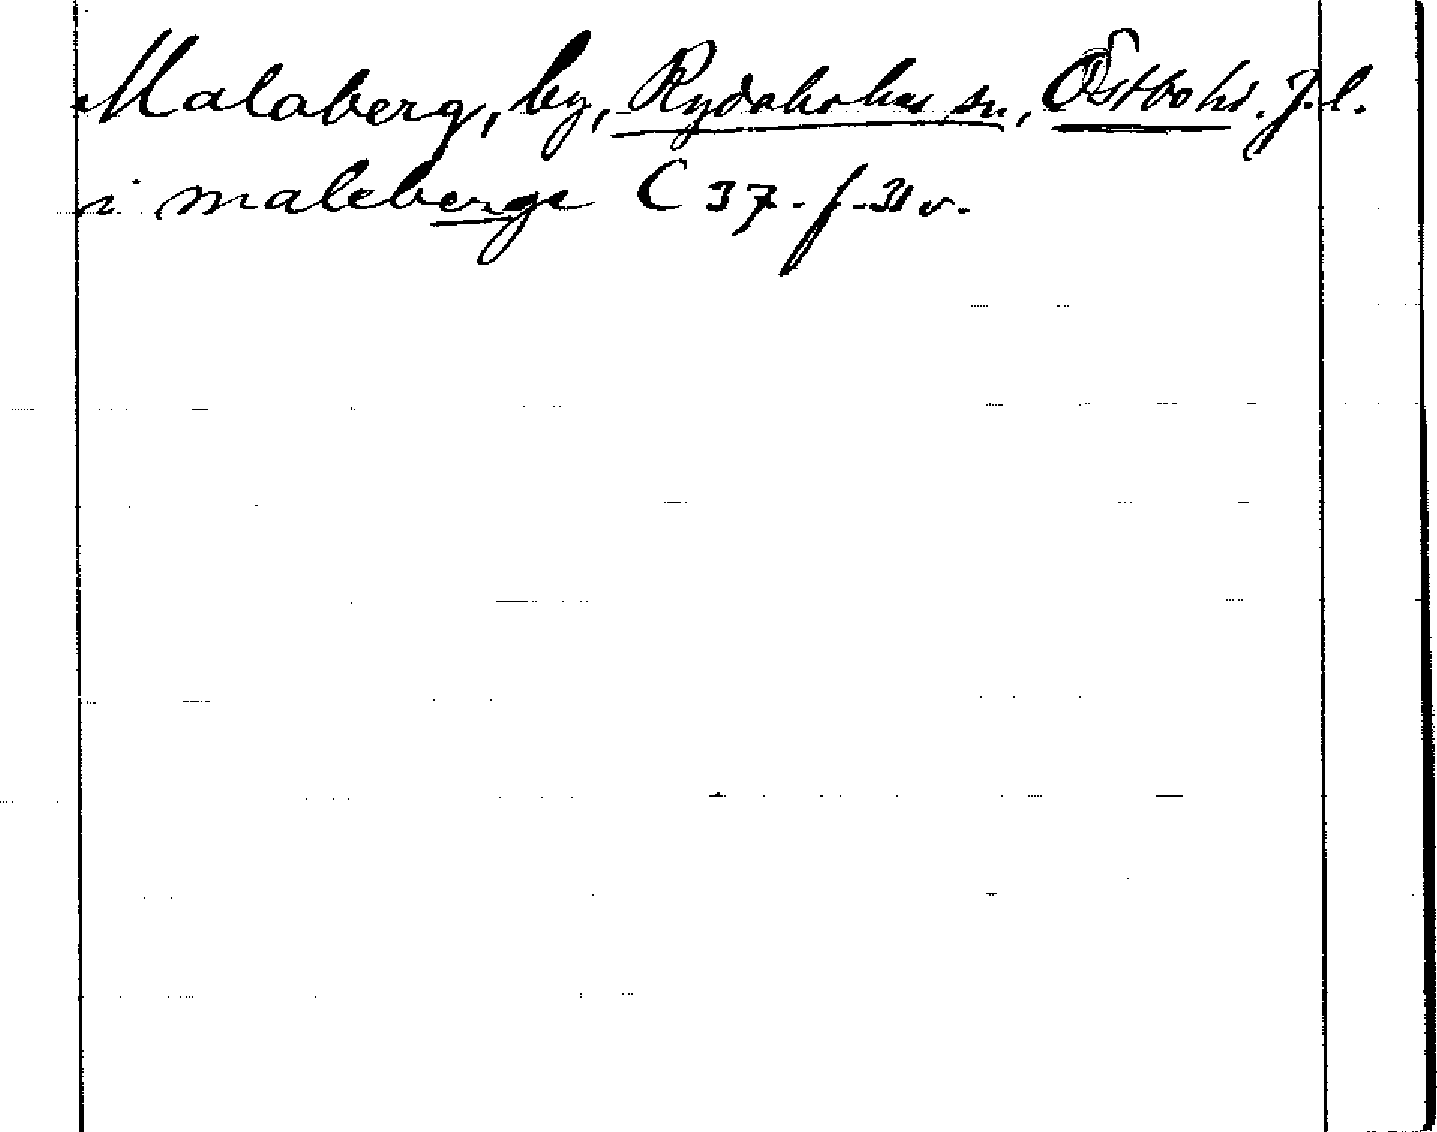 Malaberg, by, Rydaholms sn, Östbohd. J.l.
i maleberge C 37. f. 31 v.